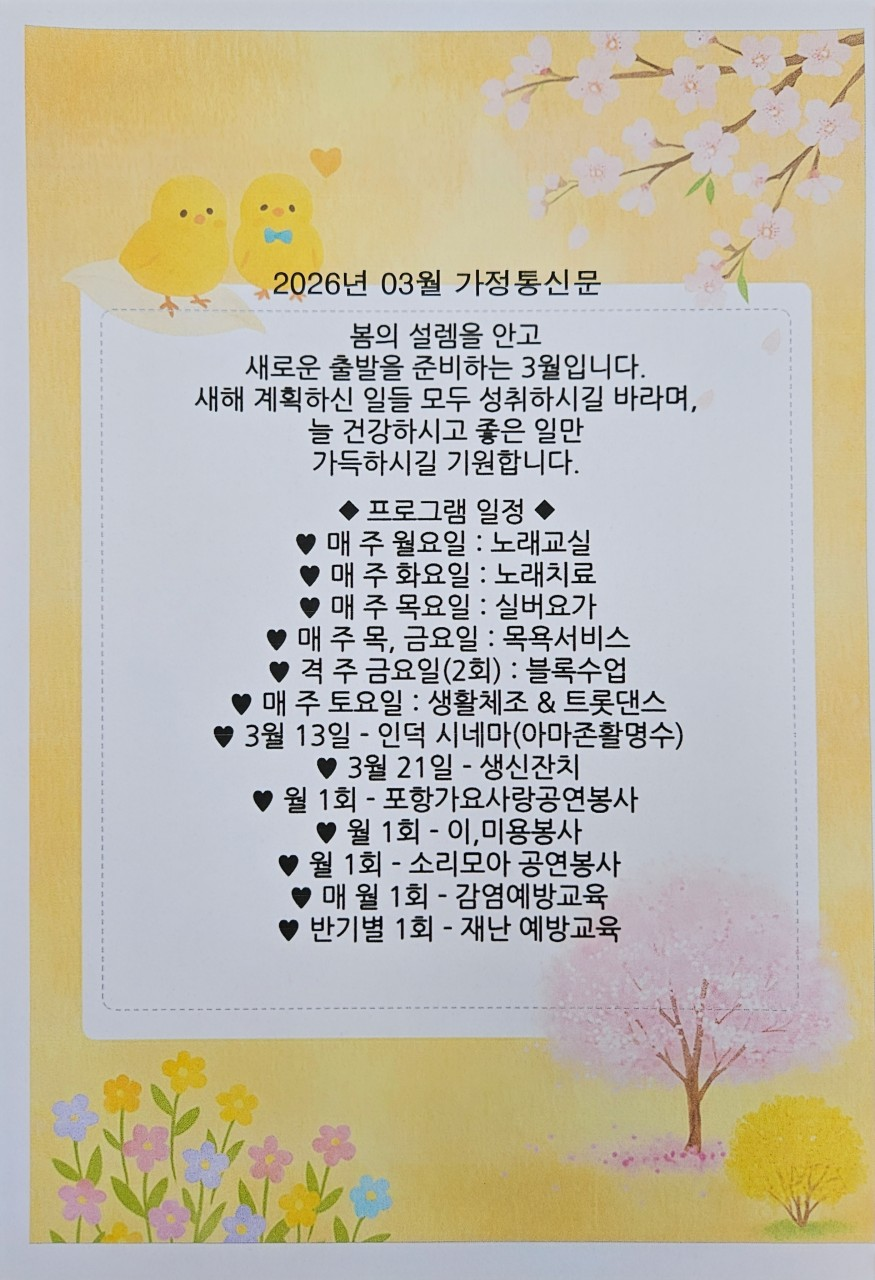 2026년 03월 가정통신문
봄의 설렘을 안고
새로운 출발을 준비하는 3월입니다.
새해 계획하신 일들 모두 성취하시길 바라며,
늘 건강하시고 좋은 일만
가득하시길 기원합니다.
◆ 프로그램 일정 ◆
♥ 매 주 월요일 : 노래교실
♥ 매 주 화요일 : 노래치료
♥ 매 주 목요일 : 실버요가
♥ 매 주 목, 금요일 : 목욕서비스
♥ 격 주 금요일(2회) : 블록수업
♥ 매 주 토요일 : 생활체조 & 트롯댄스
♥ 3월 13일 - 인덕 시네마(아마존활명수)
♥ 3월 21일 - 생신잔치
♥ 월 1회 - 포항가요사랑공연봉사
♥ 월 1회 - 이,미용봉사
♥ 월 1회 - 소리모아 공연봉사
♥ 매 월 1회 - 감염예방교육
♥ 반기별 1회 - 재난 예방교육